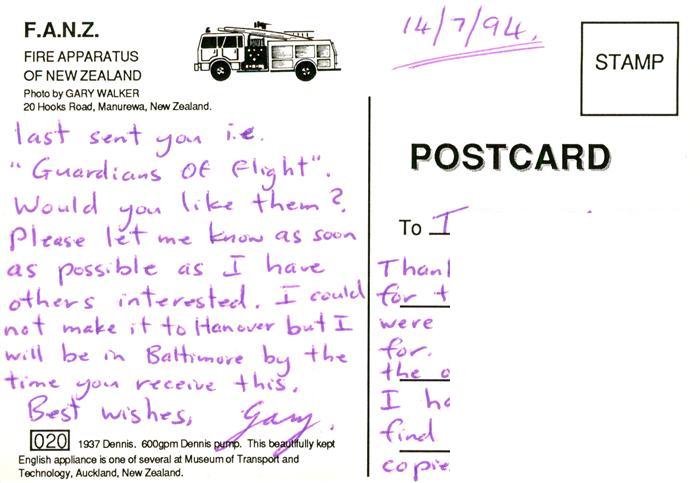 F.A.N.Z.
FIRE APPARATUS
OF NEW ZEALAND
Photo by GARY WALKER
20 Hooks Road, Manurewa, New Zealand.
last sent you i.e.
"Guardians Of Flight".
Would you like them?
Please let me know as soon
as possible as I have
others interested. I could
not make it to Hanover but I
will be in Baltimore by the
time you receive this.
Best wishes, Gary.
020 1937 Dennis. 600gpm Dennis pump. This beautifully kept
English appliance is one of several at Museum of Transport and
Technology, Auckland, New Zealand.
14/7/94.
STAMP
POSTCARD
To
for t
were
for.
the
I
find